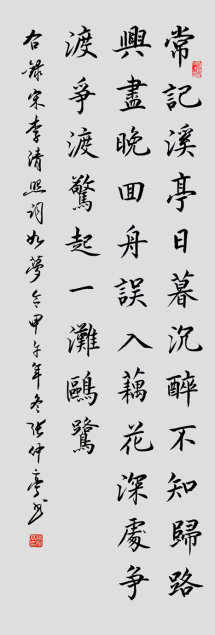 常記溪亭日暮沉醉不知歸路
興盡晚回舟誤入藕花深處爭
渡爭渡驚起一灘鷗鷺
右錄宋李清照詞如夢令甲午年冬張仲亭書